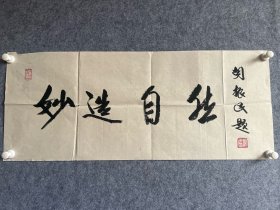 妙造自然
刘振民题